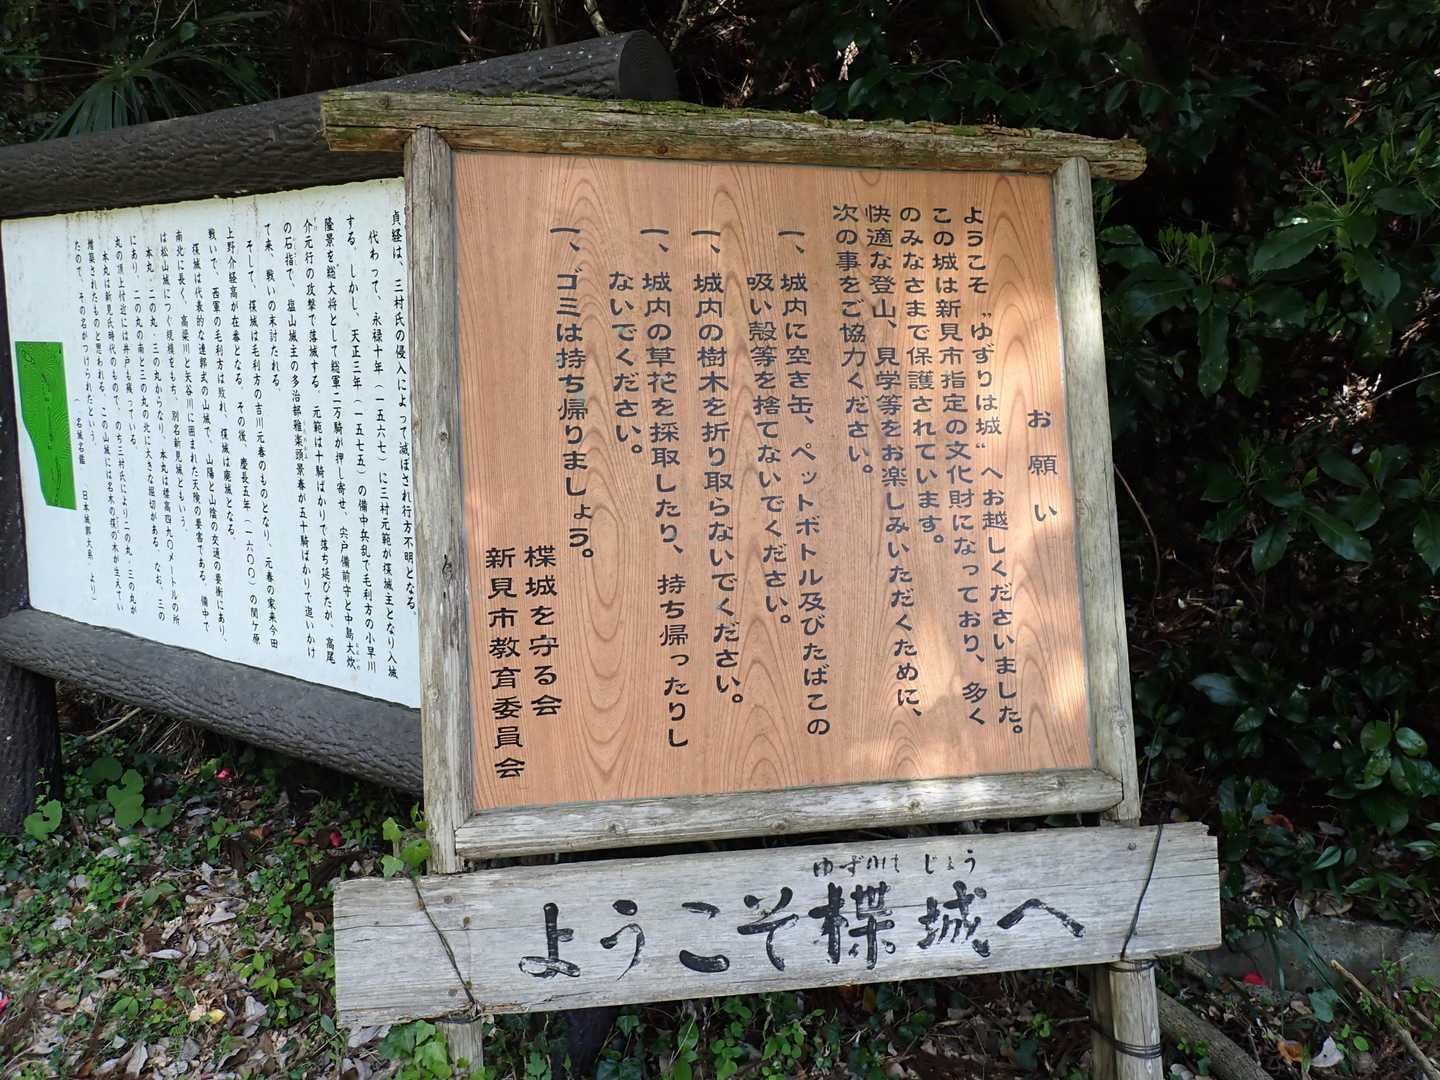 お願い
ようこそ〝ゆずりは城〟へお越しくださいました。
この城は新見市指定の文化財になっており、多く
のみなさまで保護されています。
快適な登山、見学等をお楽しみいただくために、
次の事をご協力ください。
一、城内に空き缶、ペットボトル及びたばこの
吸い殻等を捨てないでください。
一、城内の樹木を折り取らないでください。
一、城内の草花を採取したり、持ち帰ったりし
ないでください。
一、ゴミは持ち帰りましょう。
楪城を守る会
新見市教育委員会
ゆずりは じょう
ようこそ楪城へ
貞経は、三村氏の侵入によって滅ぼされ行方不明となる。
代わって、永禄十年（一五六七）に三村元範が楪城主となり入城
する。しかし、天正三年（一五七五）の備中兵乱で毛利方の小早川
隆景を総大将として総軍二万騎が押し寄せ、宍戸備前守と中島大炊
介元行の攻撃で落城する。元範は十騎ばかりで落ち延びたが、高尾
の石指で、塩山城主の多治部雅楽頭景春が五十騎ばかりで追いかけ
て来、戦いの末討たれる。
そして、楪城は毛利方の吉川元春のものとなり、元春の家来今田
上野介経高が在番となる。その後、慶長五年（一六〇〇）の関ケ原
戦いで、西軍の毛利方は敗れ、楪城は廃城となる。
楪城は代表的な連郭式の山城で、山陽と山陰の交通の要衝にあり、
南北に長く、高梁川と矢谷川に囲まれた天険の要害である。備中で
は松山城につぐ規模をもち、別名新見城ともいう。
本丸、二の丸、三の丸からなり、本丸は標高四九〇メートルの所
にあり、二の丸の南と三の丸の北に大きな堀切がある。なお、三の
丸の頂上付近には井戸も残っている。
本丸は新見氏時代のもので、のち三村氏により二の丸、三の丸が
増築されたものと思われる。この山城には名木の楪の木が生えてい
たので、その名がつけられたという。
（「名城名鑑」「日本城郭大系」より）